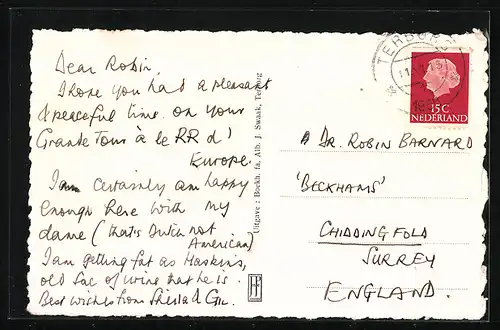 Dear Robin,
I hope you had a pleasant
& peaceful time on your
Grande Tour à le RR d'
Europe.
I am certainly am happy
enough here with my
dame (that's Dutch not
American)
I am getting fat as Haskins,
old Sac of wine that he is.
Best wishes from Sheila &
Uitgave : Boekh. fa. Alb. J. Swaak, Terborg
TERBORG
15C
NEDERLAND
DR. ROBIN BARNARD
'BECKHAMS'
CHIDDINGFOLD
SURREY
ENGLAND.